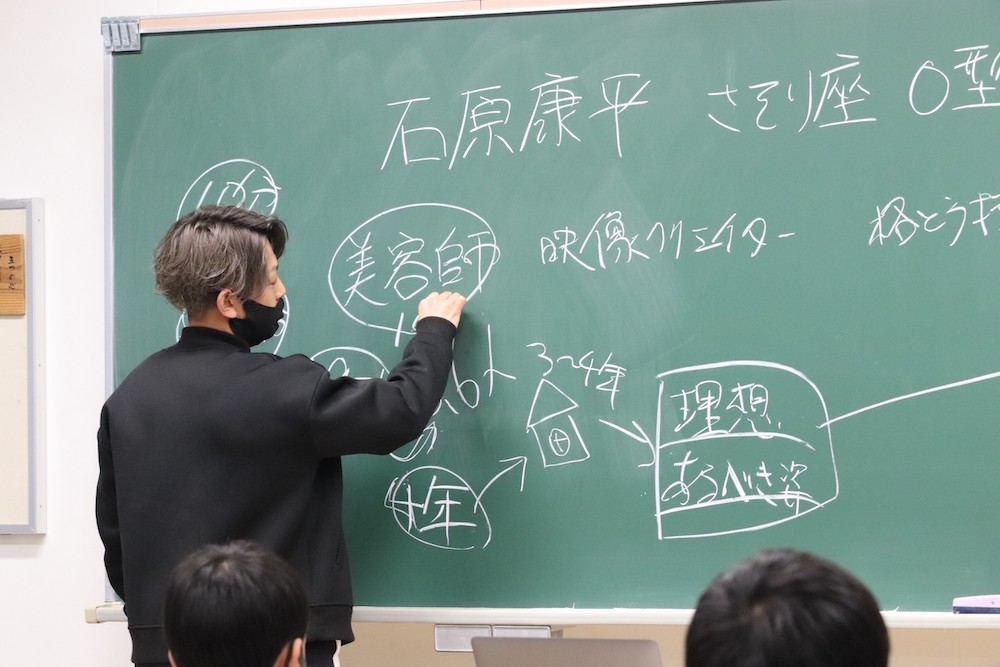 石原康平 さそり座 O型
美容師 映像クリエイター 格とう技
3〜4年
理想
あるべき姿
4年